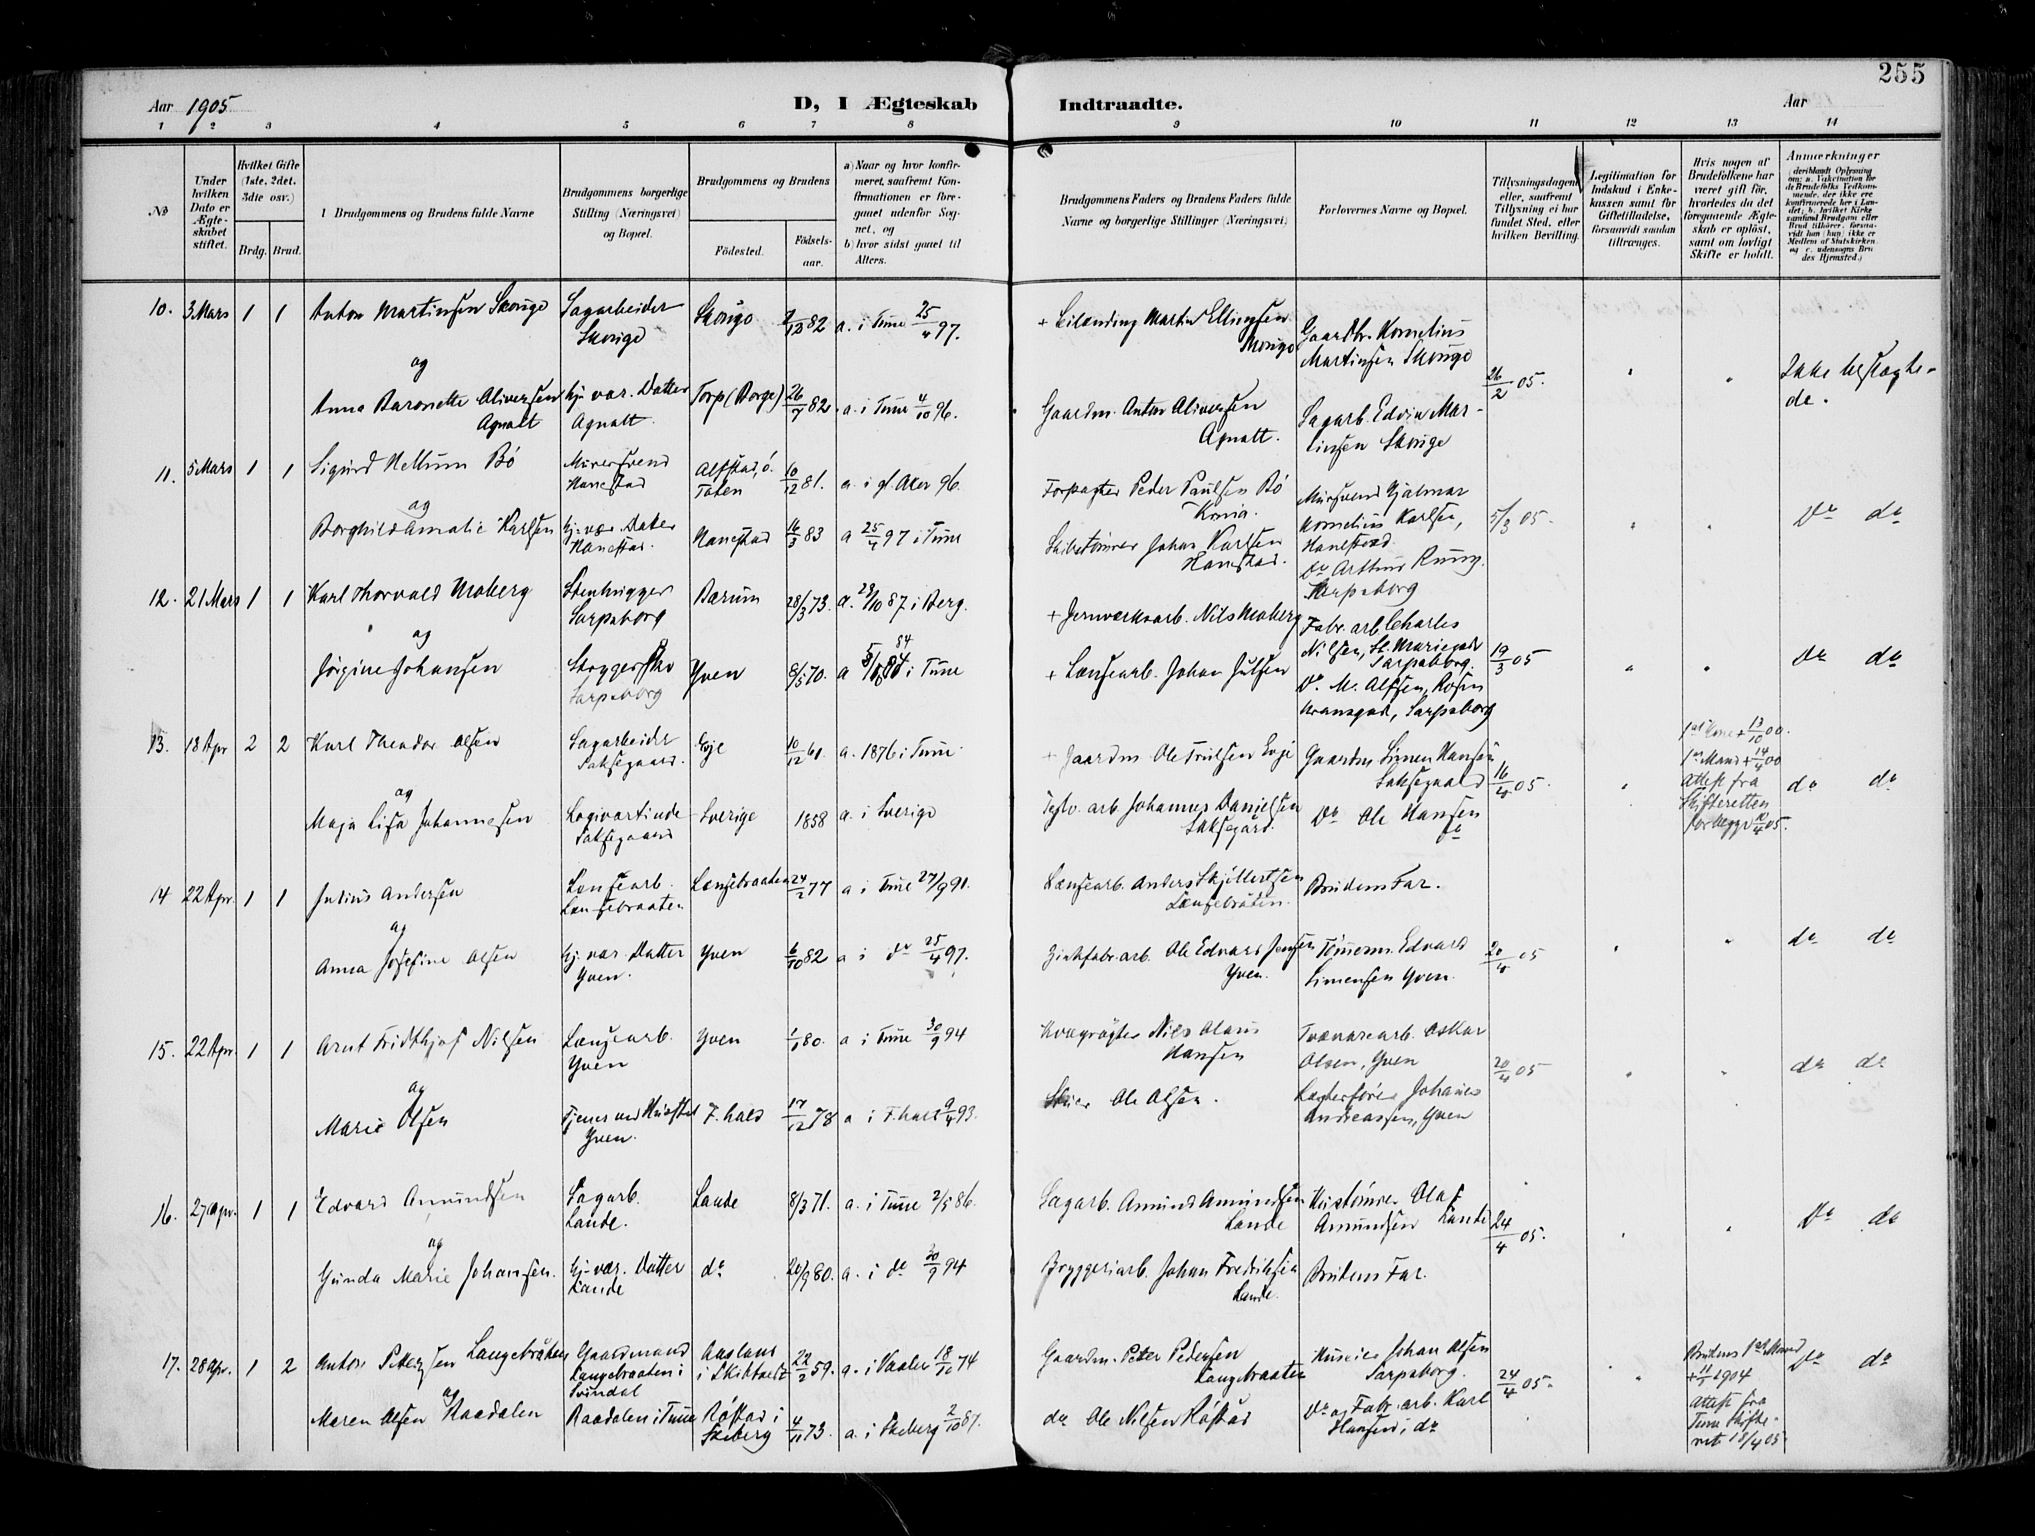 255
Aar 1905
D, I Ægteskab Indtraadte.
Aar
1 2 3 4 5 6 7 8 9 10 11 12 13 14
No
Under hvilken Dato er Ægteskabet stiftet.
Hvilket Gifte (1ste, 2det, 3die osv.)
Brdg. Brud.
Brudgommens og Brudens fulde Navne
Brudgommens borgerlige Stilling (Næringsvei) og Bopæl.
Brudgommens og Brudens
Födested.
Födsels-aar.
a) Naar og hvor konfirmeret, saafremt Konfirmationen er foregaaet udenfor Sognet, og
b) hvor sidst gaaet til Alters.
Brudgommens Faders og Brudens Faders fulde Navne og borgerlige Stillinger (Næringsvei)
Forlovernes Navne og Bopæl.
Tillysningsdagene eller, saafremt Tillysning ei har fundet Sted, efter hvilken Bevilling.
Legitimation for Indskud i Enkekassen samt for Giftetilladelse, forsaavidt saadan tiltrænges.
Hvis nogen af Brudefolkene har været gift för, hvorledes da det foregaaende Ægteskab er oplöst, samt om lovligt Skifte er holdt.
Anmærkninger
10. 3 Mars 1 1 Anton Martinsen Skovige Sagarbeider Skovige 82 a. i Tune 25/4 97.
+ Martin Ellingsen Gaardbr. Kornelius Martinsen
og
Oliversen Agnalt hj. vær. Datter Agnalt. Torp (Borge) 82. a. i Tune 4/10 96.
Gaardm. Anton Oliversen Agnalt. Sagarb. Edvin Martinsen 26/2 05. Ikke beslægtede.
11. 5 Mars 1 1 Sigurd Hellum Bö Murersvend Hanestad Toten 10/12 81. a. i gl. Aker 96.
Forpagter Peder Paulsen Bö Mursvend Hjalmar Kornelius Karlsen,
og
Borghild Amalie Karlsen hj. vær. Datter Hanestad. Hanestad 16/3 83 a 25/4 97 i Tune
Johan Karlsen Hanestad. 5/3 05. Do do
Do Arthur Sarpsborg
12. 21 Mars 1 1 Karl Thorvald Moberg Stenhugger Sarpsborg Bærum 28/3 73. a. 87 i Berg.
+ Jernværksarb. Nils Moberg Fabr. arb Charles Nilsen, St. Mariegad Sarpsborg.
og
Jörgine Johansen Sarpsborg Yven 8/5 70. a i Tune
+ Lænsearb. Johan Julsen Do M. Alfsen, Sarpsborg 19/3 05 Do do
13. 18 Apr 2 2 Karl Theodor Olsen Sagarbeider Saksegaard. Evje 10/12 61. a. 1876 i Tune.
+ Gaardm Ole Truilsen Evje Gaardm Simen Hansen Saksegaard 16/4 05.
og
Maja Lisa Johannesen Logivertinde Saksegaard Sverige 1858 a. i Sverige
arb Johannes Danielsen Saksegård. Do Ole Hansen do
1ste Kone + 13/10 00.
1ste Mand + 14/4 00
Attest fra Skifteretten for begge 10/4 05.
do do
14 22 Apr. 1 1 Julius Andersen Lænsearb. Lænsebraaten Lænsebraaten 24/2 77 a i Tune 27/9 91.
Lænsearb. Anders Skjellertsen Lænsebråten. Brudens Far.
og
Anna Josefine Olsen hj. vær. Datter Yven. Yven 6/10 82 a i do 25/4 97.
Ole Edvard Jensen Yven. Edvard Simensen Yven. 20/4 05 do do
15. 22 Apr. 1 1 Arnt Fridthjof Nilsen Lænsearb. Yven Yven 80. a i Tune 30/9 94
Kvægrögter Nils Olaus Hansen Oskar Olsen, Yven 20/4 05 do do
og
Marie Olsen Yven. F. hald 17/12 78 a i F. hald 9/4 93.
Ole Olsen. Johannes Andreassen, Yven
16. 27 Apr. 1 1 Edvard Amundsen Sagarb. Lande. Lande 8/3 71. a. i Tune 2/5 86.
Sagarb. Amund Amundsen Lande Hustömrer Olaf Amundsen Lande 24/4 05. Do do
og
Gunda Marie Johansen. hj. vær. Datter Lande do 20/9 80. a. i do 30/9 94
Bryggeriarb. Johan Fredriksen Lande. Brudens Far.
17. 28 Apr. 1 2 Anton Petersen Langebråten Gaardmand Langebraaten i Svindal i Skibtvedt 22/2 59. a. i Vaaler 18/10 74
Gaardm. Peter Pedersen Langebraaten Huseier Johan Olsen Sarpsborg. 24/4 05.
og
Maren Olsen Raadalen Raadalen i Tune Röstad i Skeberg 4/11 73. a. i Skeberg 2/10 87.
do Ole Nilsen Röstad Do og Fabr. arb. Karl Hansen i do
Brudens 1ste Mand + 1904
Attest fra Tune Skifteret 18/4 05
Do do